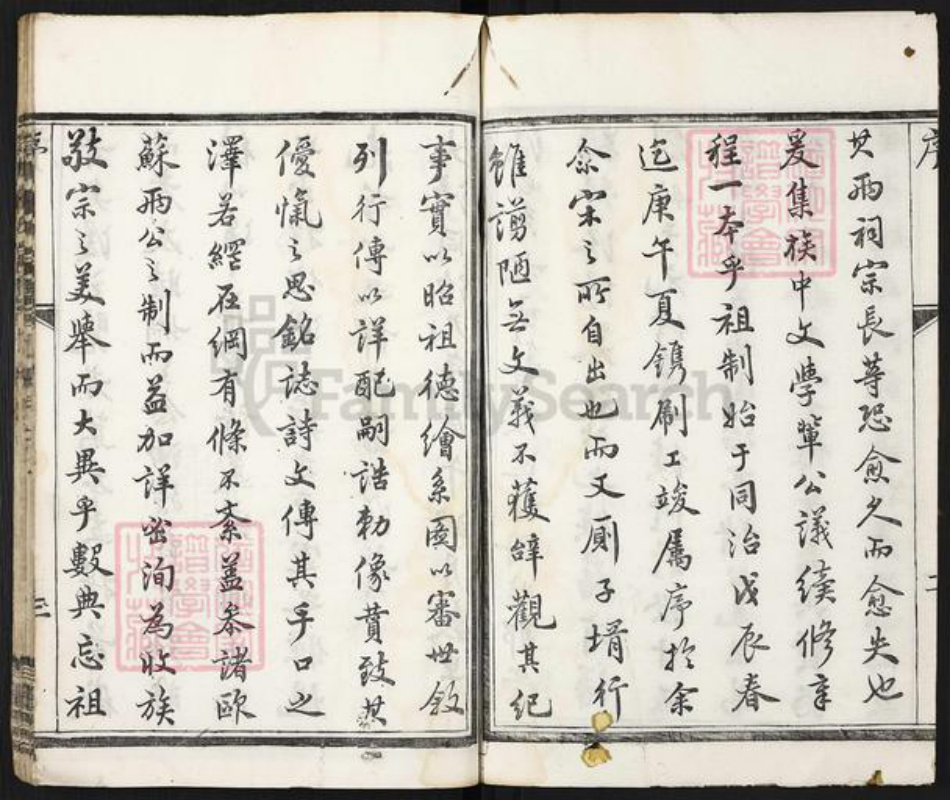 序
其兩祠宗長等恐愈久而愈失也
爰集族中文學輩公議續修章
程一本乎祖制始于同治戊辰春
迄庚午夏鐫刷工竣屬序於余
余宋之所自出也而又廁子壻行
雖謭陋無文義不獲辭觀其紀
二
事實以昭祖德繪系圖以審世敘
列行傳以詳配嗣誥勅像賛致其
優愾之思銘誌詩文傳其手口之
澤若網在綱有條不紊蓋叅諸歐
蘇兩公之制而益加詳密洵為收族
敬宗之美舉而大異乎數典忘祖
三
FamilySearch